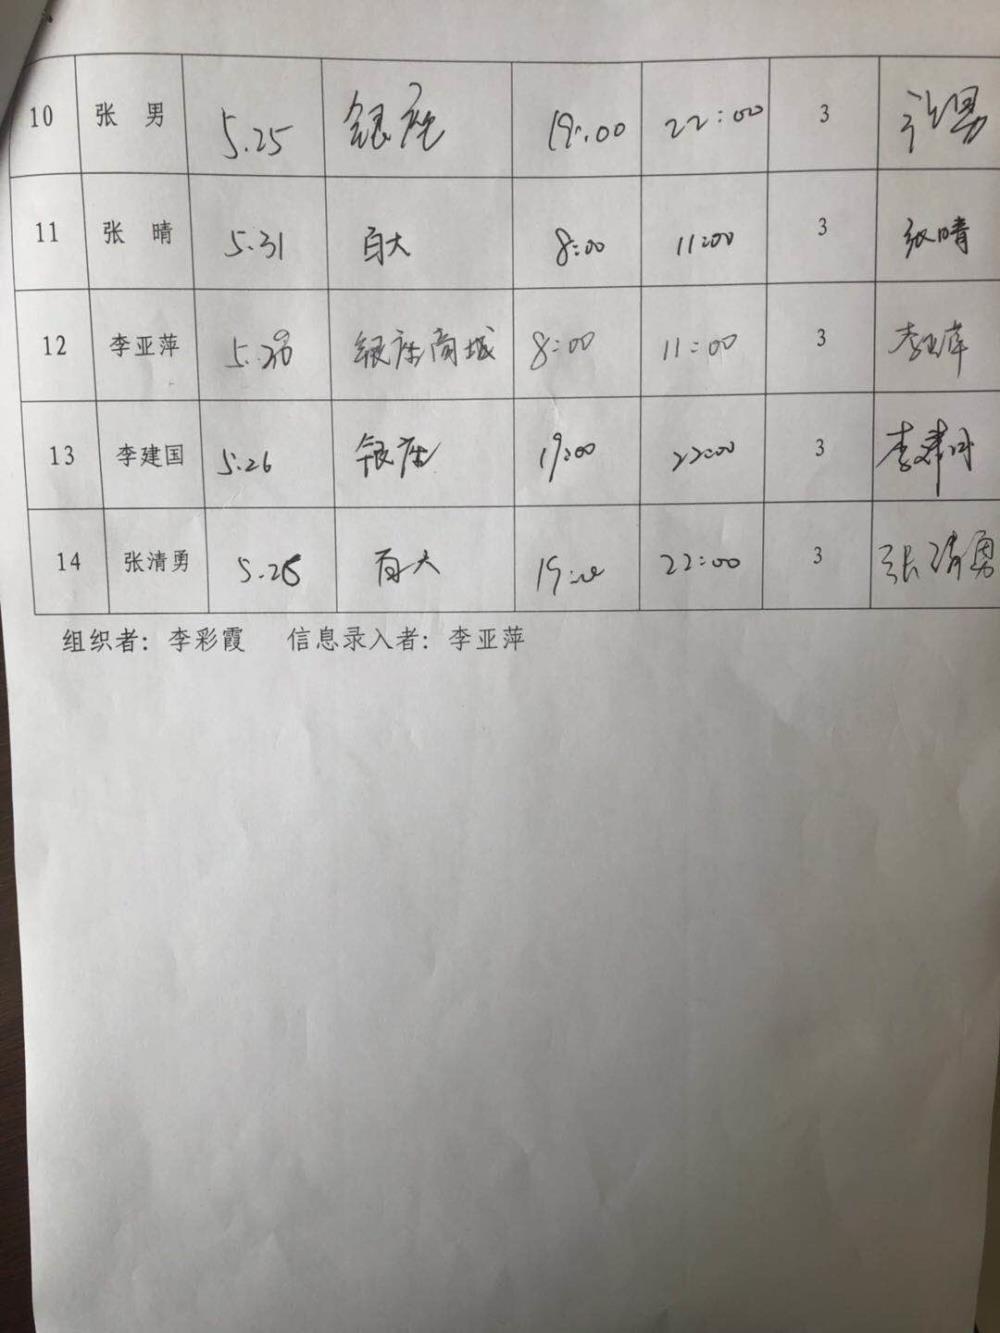 10 张 男 5.25 银座 19:00 22:00 3 张男
11 张 晴 5.31 百大 8:00 11:00 3 张晴
12 李亚萍 银座商城 8:00 11:00 3 李亚萍
13 李建国 5.26 银座 19:00 22:00 3 李建国
14 张清勇 5.26 百大 19:00 22:00 3 张清勇
组织者：李彩霞 信息录入者：李亚萍